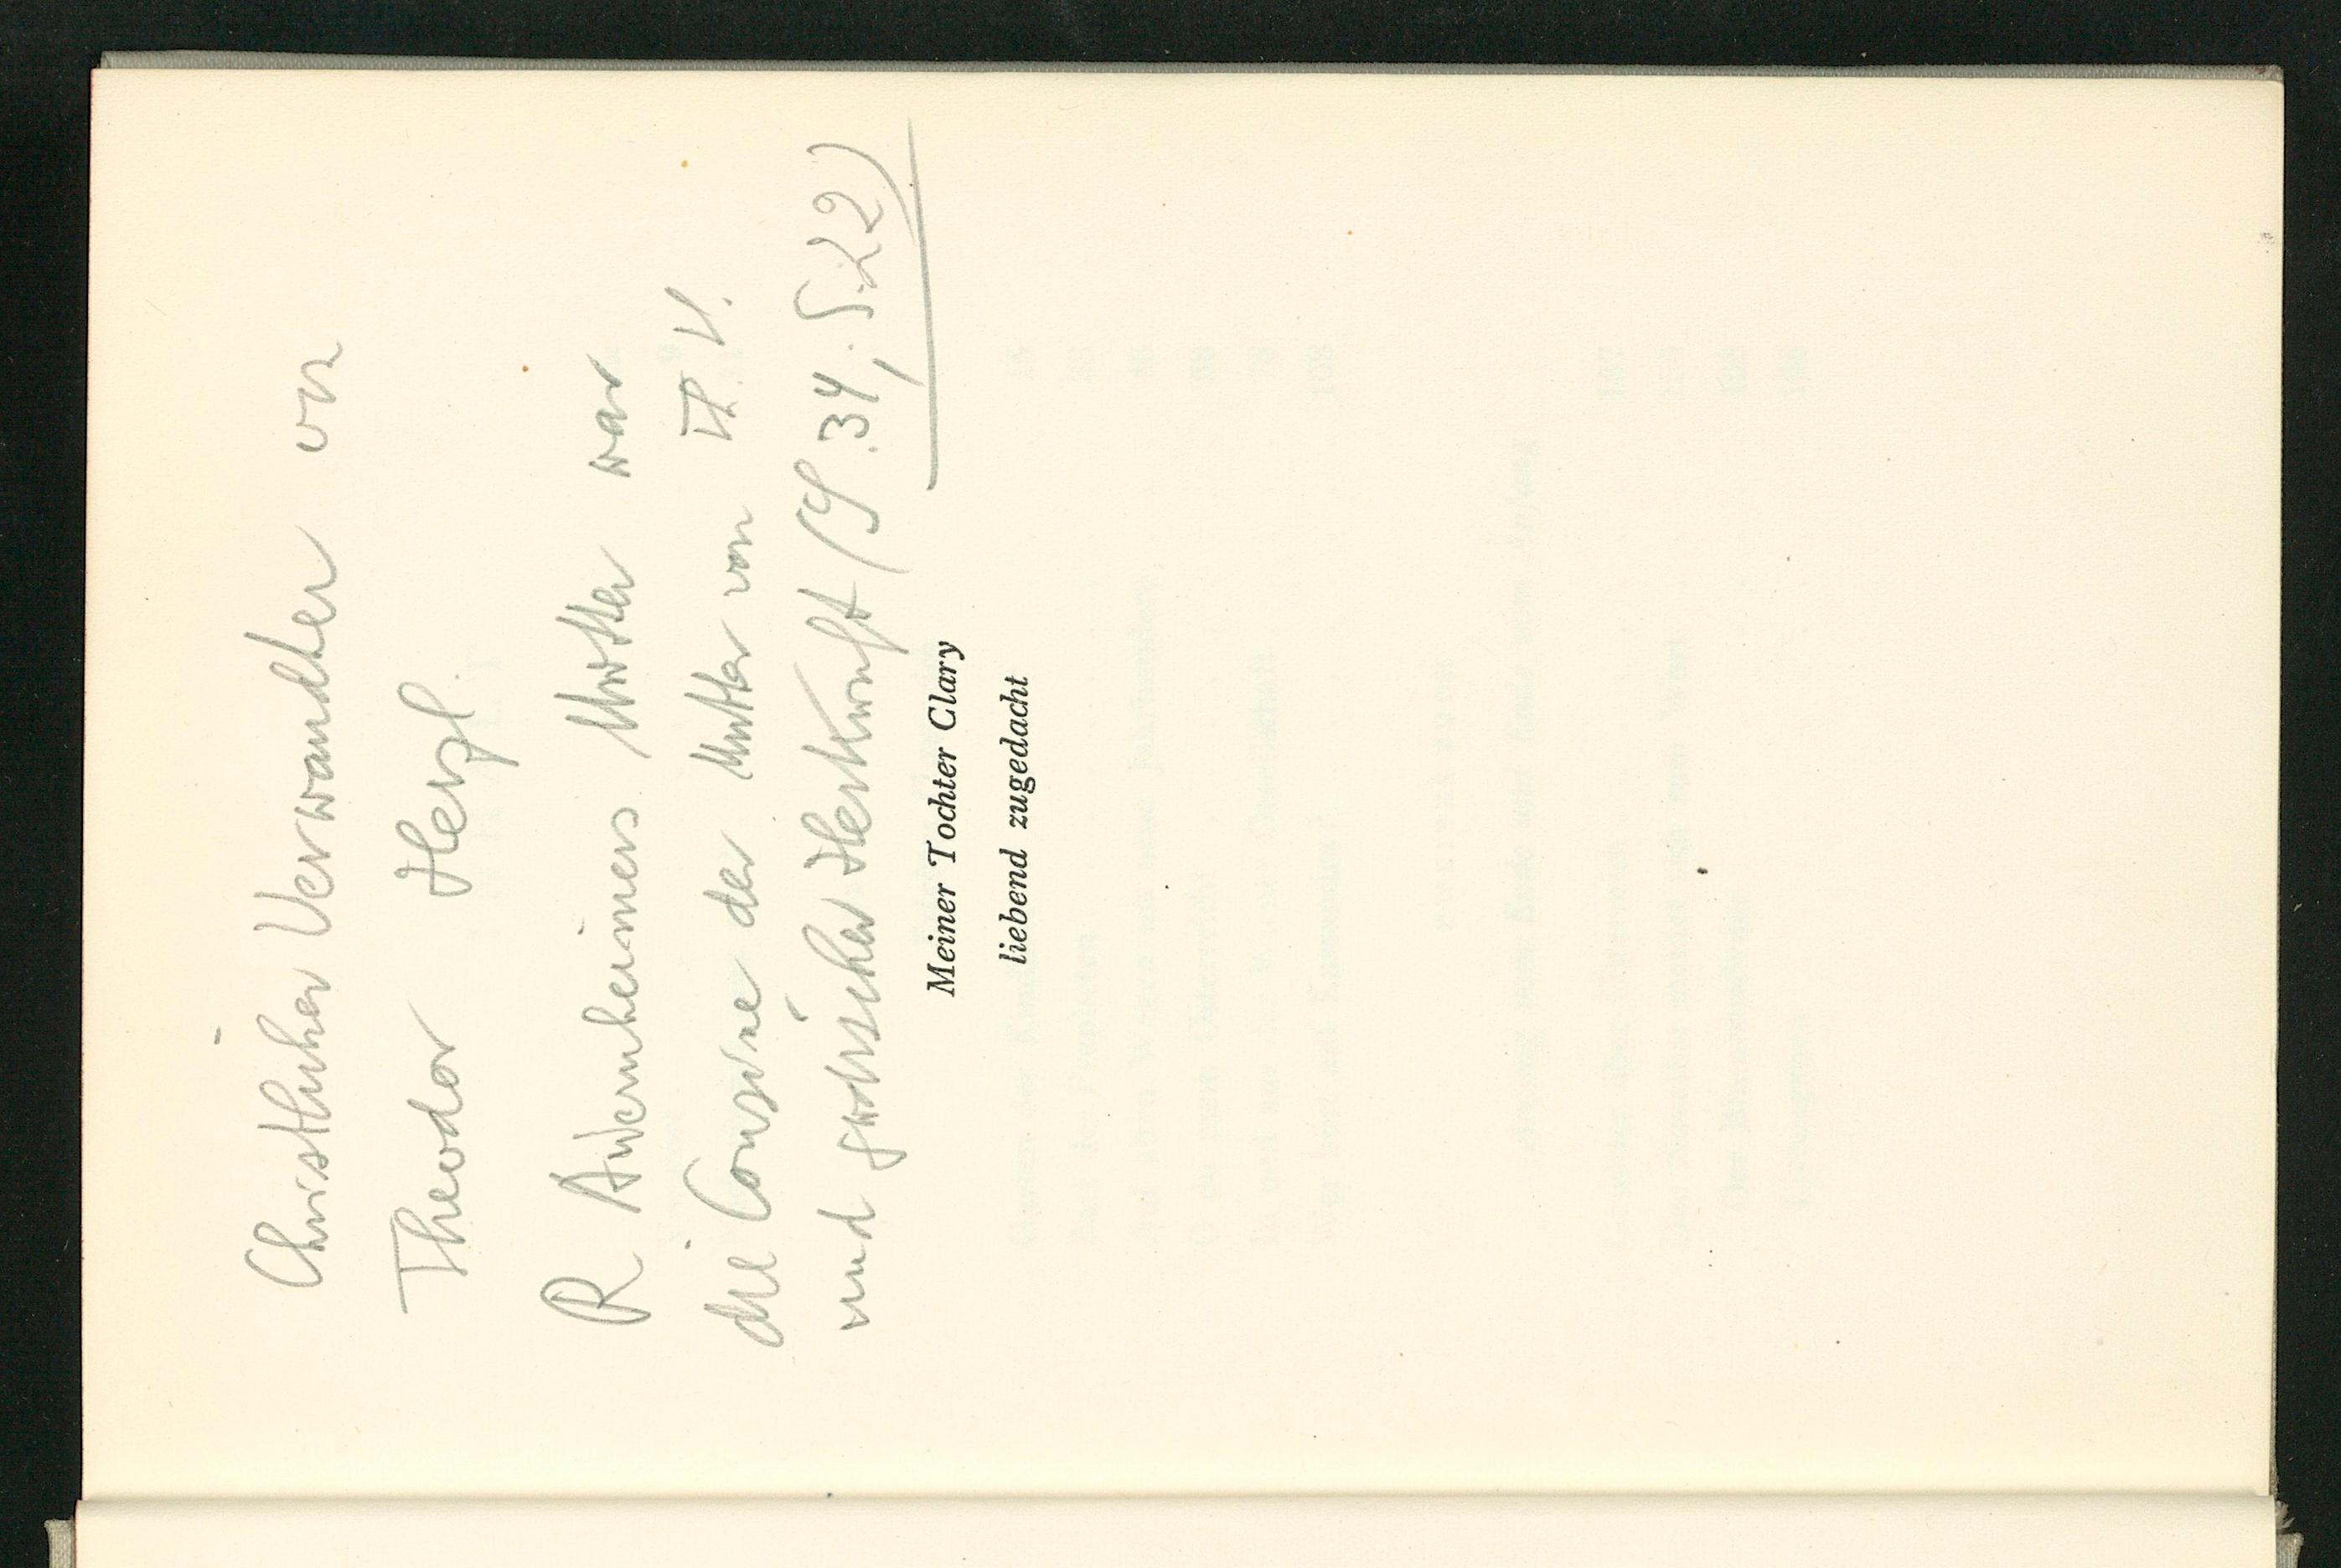 Christlicher Verwandter von
Theodor Herzl.
R Auernheimers Mutter war
die Cousine der Mutter von Th. H.
und jüdischer Herkunft (S. 34, 522)
Meiner Tochter Clary
liebend zugedacht